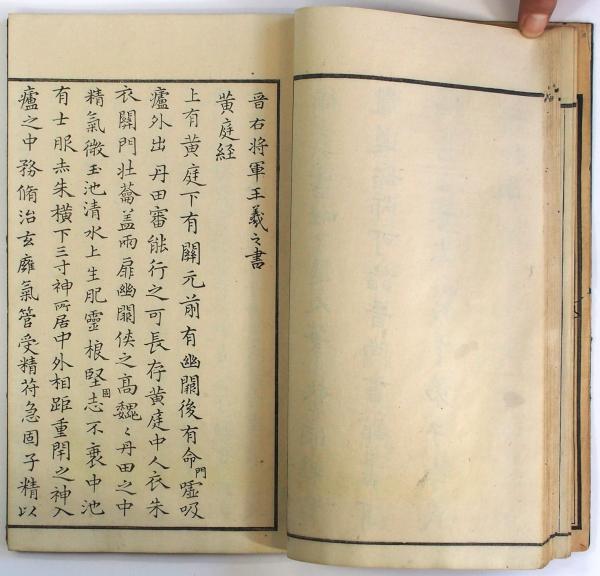 晋右将軍王羲之書
黄庭経
上有黄庭下有關元前有幽關後有命門噓吸
廬外出丹田審能行之可長存黄庭中人衣朱
衣關門壮蘥盖兩扉幽關侠之高魏〻丹田之中
精氣微玉池清水上生肥靈根堅固志不衰中池
有士服赤朱横下三寸神所居中外相距重閇之神入
廬之中務脩治玄廱氣管受精苻急固子精以